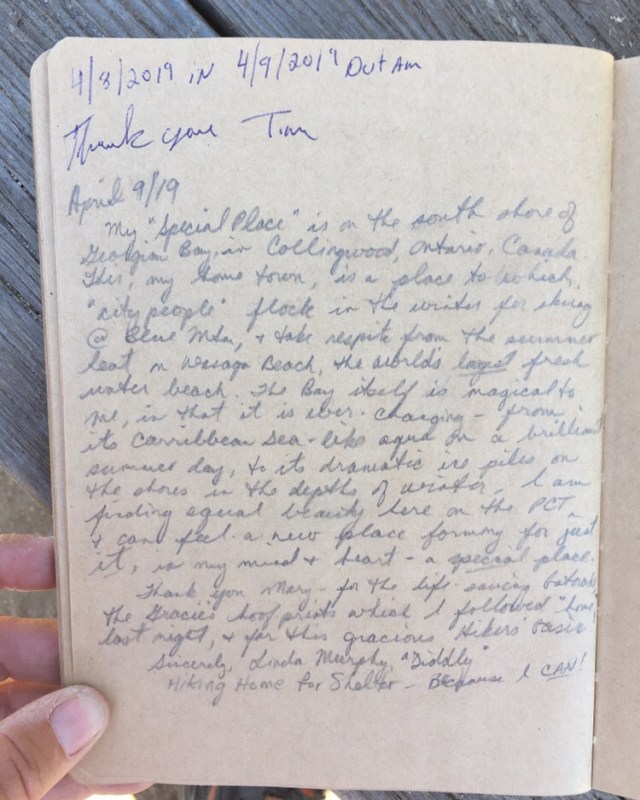 4/8/2019 IN 4/9/2019 Out AM
Thank you Tim
April 9/19
My "Special Place" is on the south shore of
Georgian Bay, in Collingwood, Ontario, Canada.
This, my home town, is a place to which
"city people" flock in the winter for skiing
@ Blue Mtn, & take respite from the summer
heat in Wasaga Beach, the world's largest fresh
water beach. The Bay itself is magical to
me, in that it is ever-changing - from
its Carribbean Sea-like aqua on a brilliant
summer day, to its dramatic ice piles on
the shores in the depths of winter. I am
finding equal beauty here on the PCT
& can feel a new place forming for just
it, in my mind & heart - a special place.
Thank you Mary - for the life-saving Gatorade
the Gracie's hoof prints which I followed "home"
last night, & for this gracious Hikers' Oasis
Sincerely, Linda Murphy, "Diddly"
Hiking Home for Shelter - Because I CAN!